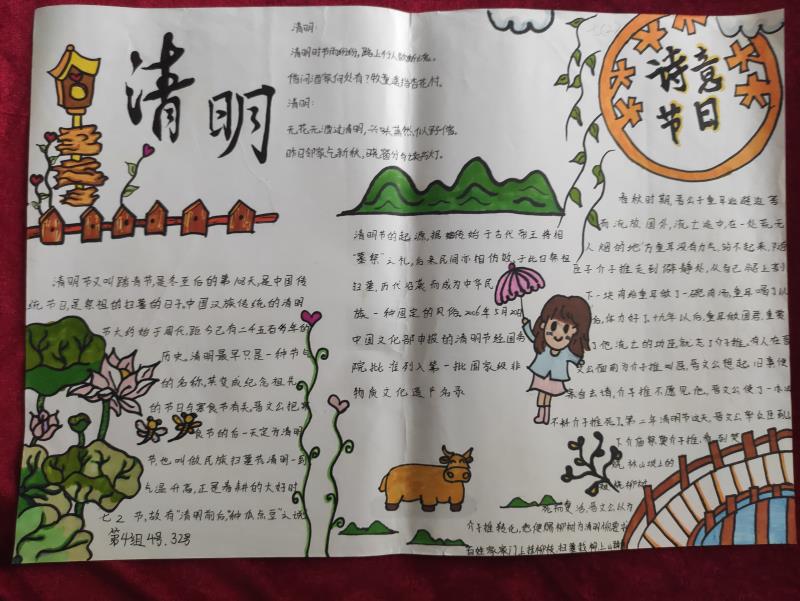 清明
诗意
节日
清明:
清明时节雨纷纷,路上行人欲断魂。
借问酒家何处有?牧童遥指杏花村。
清明:
无花无酒过清明,兴味萧然似野僧。
昨日邻家乞新火,晓窗分与读书灯。
清明节又叫踏青节,是冬至后的第108天,是中国传
统节日,是祭祖的扫墓的日子。中国汉族传统的清明
节大约始于周代,距今已有二千五百多年的
历史。清明最早只是一种节气
的名称,其变成纪念祖先
的节日与寒食节有关。晋文公把寒
食节的后一天定为清明
节,也叫做民族扫墓节清明一到
气温升高,正是春耕的大好时
节,故有"清明前后,种瓜点豆"之说
第4组4号,32号
清明节的起源,据传始于古代帝王将相
"墓祭"之礼,后来民间亦相仿效,于此日祭祖
扫墓,历代沿袭而成为中华民
族一种固定的风俗。2006年5月20日
中国文化部申报的清明节经国务
院批准列入第一批国家级非
物质文化遗产名录
春秋时期,晋公子重耳为避迫害
而流放国外,流亡途中,在一处荒无
人烟的地方重耳没有力气站不起来,
臣子介子推走到僻静处,从自己
下一块肉给重耳做了一碗肉汤,重耳喝了以
后,体力好了,十九年以后,重耳做国君,重赏
了他流亡的功臣,就忘了介子推。有人在晋
文公面前为介子推叫屈,晋文公想起旧事便
亲自去请,介子推不愿见他。晋文公使了一
介子推死了,第二年清明节这天,晋文公率众臣到山
烧林山坡上的
死而复活,晋文公以为
介子推转化,他便赐柳树为清明柳
百姓家家门上挂柳枝,扫墓